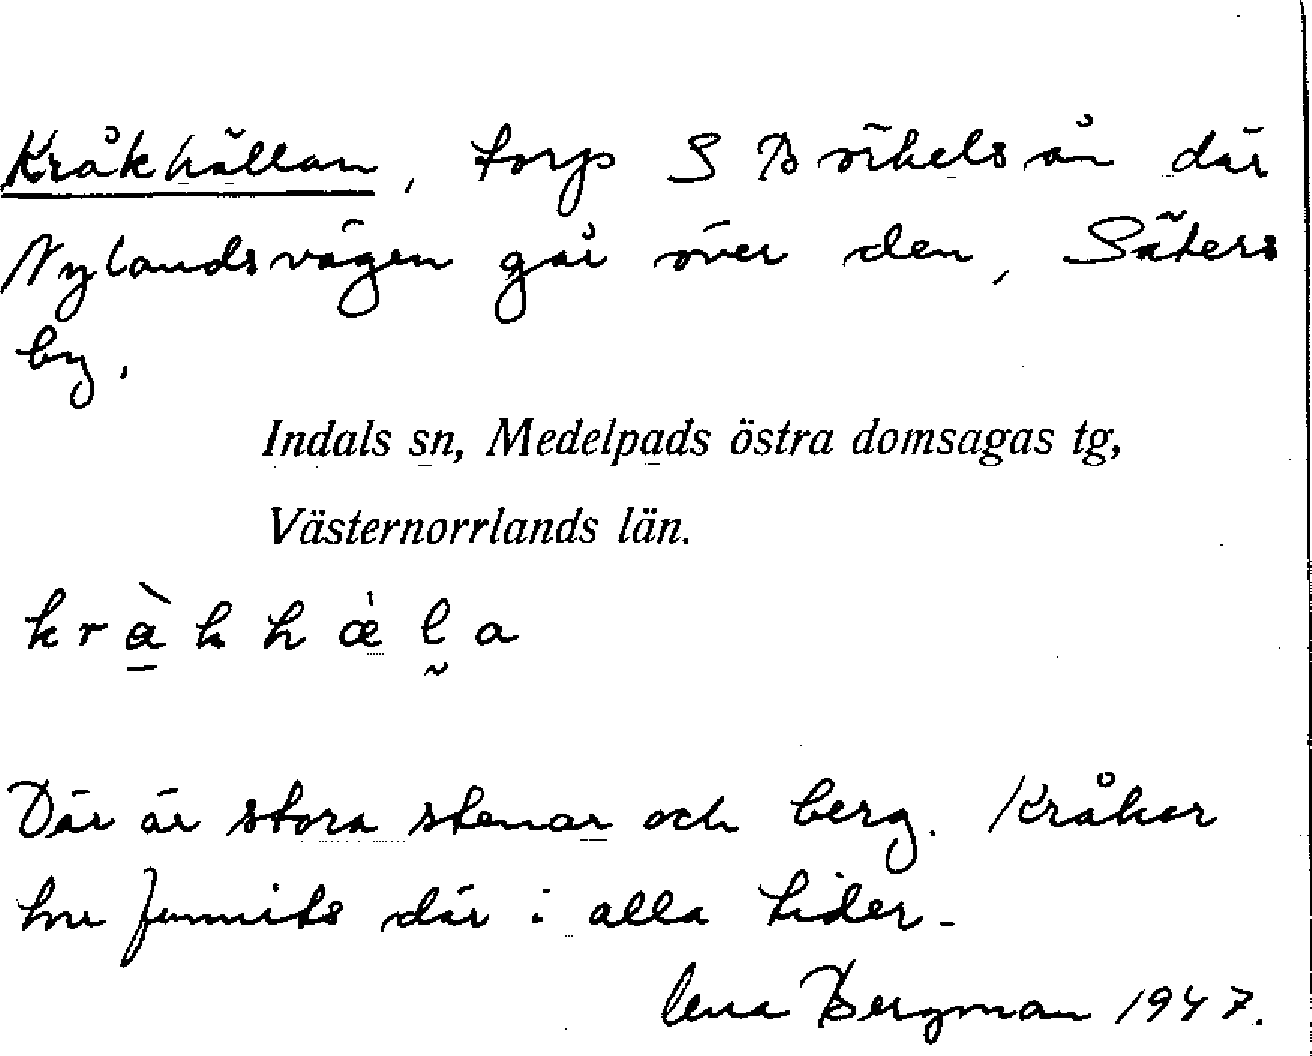 Kråkhällan, torp S Bölkelsån där
Nylandsvägen går över den, Säters
by.
Indals sn, Medelpads östra domsagas tg,
Västernorrlands län.
kràkhæ̀l̰a
Där är stora stenar och berg. Kråkor
ha funnits där i alla tider.
Lena Bergman 1947.